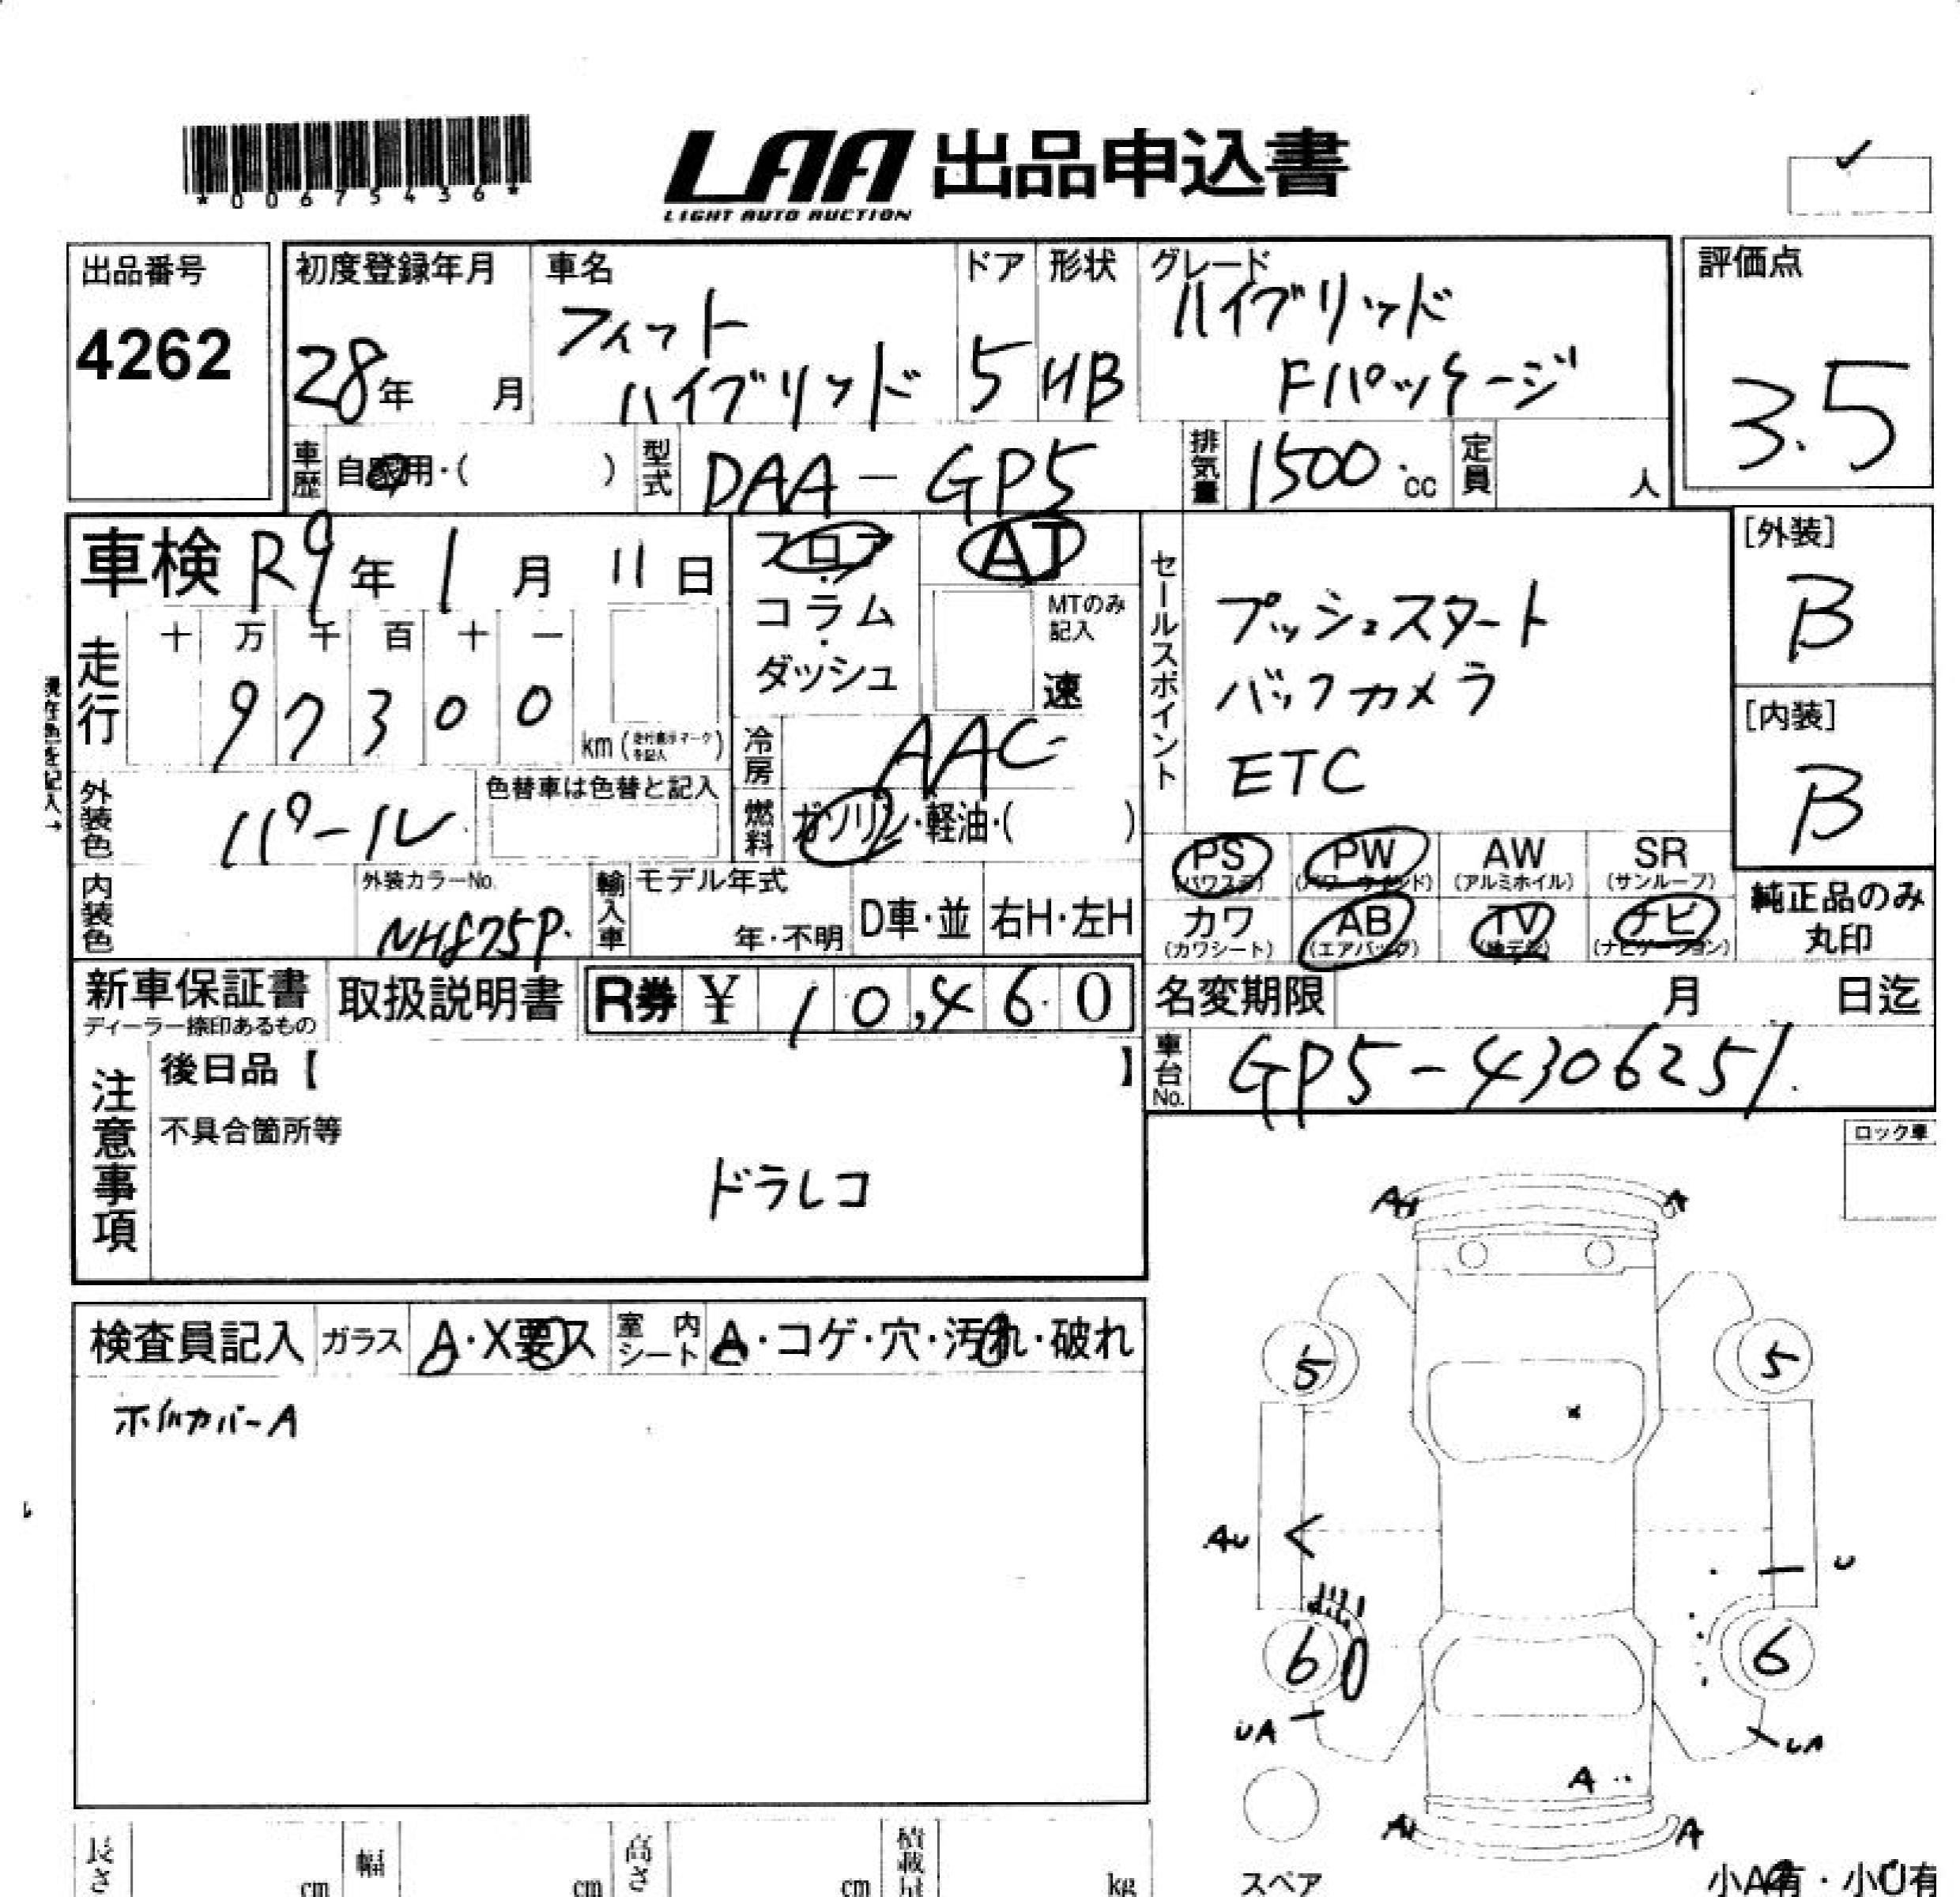 *00675436*
LAA 出品申込書
LIGHT AUTO AUCTION
出品番号
4262
初度登録年月
28年 月
車名
フィット
ハイブリッド
ドア
5
形状
HB
グレード
ハイブリッド
Fパッケージ
評価点
3.5
車歴
自家用・( )
型式
DAA-GP5
排気量
1500cc
定員
人
車検 R9年 1月 11日
走行
十 万 千 百 十 一
9 7 3 0 0
km (走行表示マークを記入)
現在色を記入→
フロア
・
コラム
・
ダッシュ
AT
MTのみ
記入
速
冷房
AAC
燃料
ガソリン・軽油・( )
外装色
パール
色替車は色替と記入
内装色
外装カラーNo.
NH875P
輸入車
モデル年式
年・不明
D車・並
右H・左H
セールスポイント
プッシュスタート
バックカメラ
ETC
[外装]
B
[内装]
B
PS
(パワステ)
PW
(パワーウインド)
AW
(アルミホイル)
SR
(サンルーフ)
カワ
(カワシート)
AB
(エアバッグ)
TV
(地デジ)
ナビ
(ナビゲーション)
純正品のみ
丸印
新車保証書
ディーラー捺印あるもの
取扱説明書
R券 ¥ 10,460
名変期限 月 日迄
車台No.
GP5-4306251
注意事項
後日品【 】
不具合箇所等
ドラレコ
ロック車
検査員記入
ガラス
A・X要・ス
室内
シート
A・コゲ・穴・汚れ・破れ
ホイルカバーA
A
A
5
5
AU
U
6
6
UA
UA
A
A
A
スペア
長さ
cm
幅
cm
高さ
cm
積載量
kg
小A有・小U有